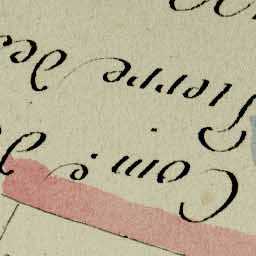 Com.e de
Pierre des